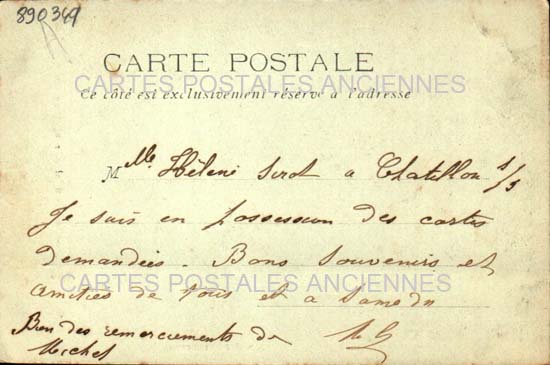 890349
CARTE POSTALE
CARTES POSTALES ANCIENNES
Ce côté est exclusivement réservé à l'adresse
Mlle Hélène Sirot a Chatillon s/s
Je suis en possession des cartes
demandées. Bons Souvenirs et
CARTES POSTALES ANCIENNES
amitiés de tous et a Samedi
Bien des remerciements de
Michel